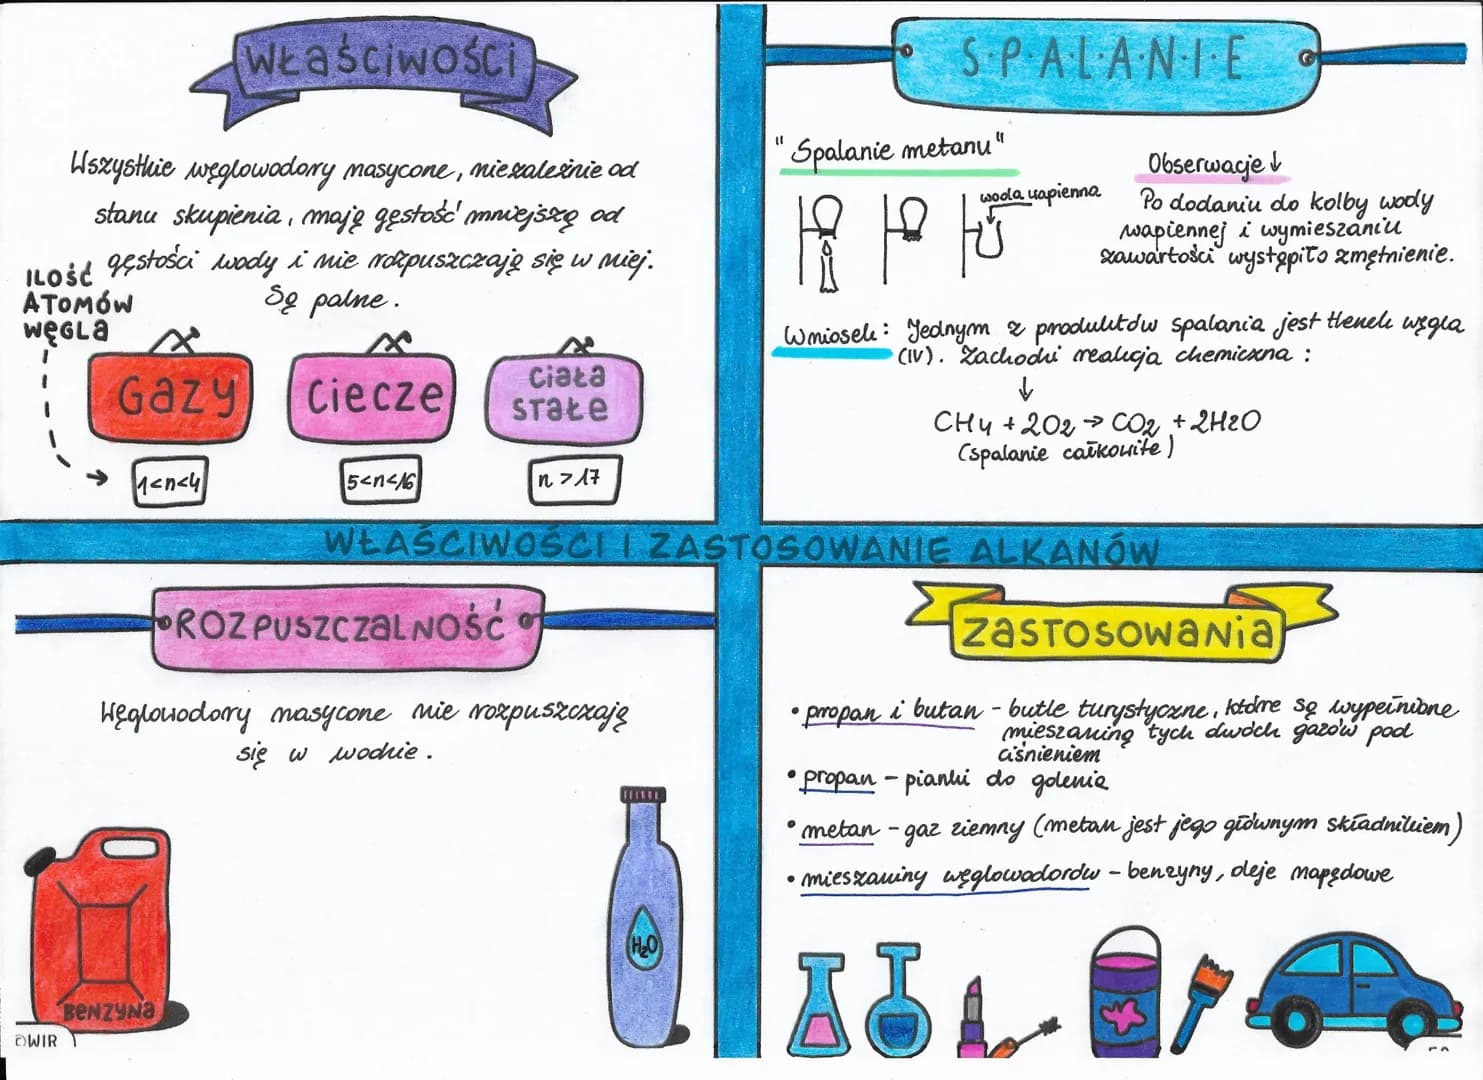 Właściwości
Wszystkie węglowodory nasycone, niezależnie od
stanu skupienia, mają gęstość mniejszą od
gęstości wody i nie rozpuszczają się w niej.
Są palne.
ILOŚĆ
ATOMÓW
WĘGLA
GAZY
CIECZE
CIAŁA
STAŁE
1<n<4
5<n<16
n>17
S·P·A·L·A·N·I·E
"Spalanie metanu"
woda wapienna
Obserwacje ↓
Po dodaniu do kolby wody
wapiennej i wymieszaniu
zawartości wystąpiło zmętnienie.
Wniosek: Jednym z produktów spalania jest tlenek węgla
(IV). Zachodzi reakcja chemiczna:
↓
CH4 + 2O2 → CO2 + 2H2O
(spalanie całkowite)
WŁAŚCIWOŚCI I ZASTOSOWANIE ALKANÓW
ROZPUSZCZALNOŚĆ
Węglowodory nasycone nie rozpuszczają
się w wodzie.
BENZYNA
H2O
WIR
ZASTOSOWANIA
• propan i butan – butle turystyczne, które są wypełnione
mieszaniną tych dwóch gazów pod
ciśnieniem
• propan – pianki do golenia
• metan – gaz ziemny (metan jest jego głównym składnikiem)
• mieszaniny węglowodorów – benzyny, oleje napędowe